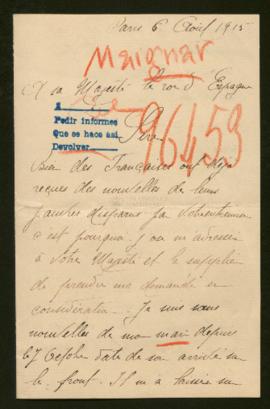 Paris 6 Août 1915
Maignar
A sa Majesté le roi d'Espagne
A
Pedir informes
Que se hace así
Devolver
96453
Sire
Bien des Françaises ont déjà
reçues des nouvelles de leurs
pauvres disparus par
c'est pourquoi j'ose m'adresser
à Votre Majesté et le supplier
de prendre ma demande en
considération. Je suis sans
nouvelles de mon mari depuis
le 7 date de son arrivée sur
le front. Il m'a laissée